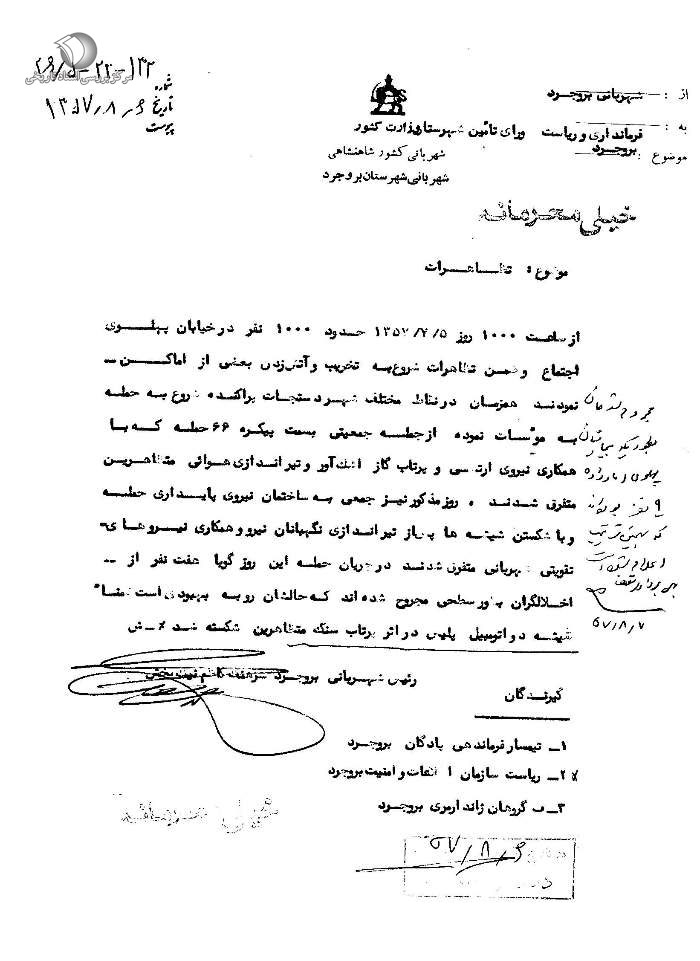 مرکز بررسی اسناد تاریخی
شماره
تاریخ ۱۳۵۷/۸/۶
پیوست
از : شهربانی بروجرد
به : فرمانداری و ریاست شورای تأمین شهرستان بروجرد
موضوع :
وزارت کشور
شهربانی کشور شاهنشاهی
شهربانی شهرستان بروجرد
خیلی محرمانه
موضوع : تظاهرات
از ساعت ۱۰۰۰ روز ۱۳۵۷/۷/۵ حدود ۱۰۰۰ نفر در خیابان پهلوی
اجتماع و ضمن تظاهرات شروع به تخریب و آتش زدن بعضی از اماکن ــ
نمودند همزمان در نقاط مختلف شهر دستجات پراکنده شروع به حمله
به مؤسسات نموده از جمله جمعیتی بسمت پیکره ۶۶ حمله که با
همکاری نیروی ارتشی و پرتاب گاز اشک‌آور و تیراندازی هوائی متظاهرین
متفرق شدند . روز مذکور نیز جمعی به ساختمان نیروی پایداری حمله
و با شکستن شیشه ها پس از تیراندازی نگهبانان نیرو و همکاری نیروهای ــ
تقویتی شهربانی متفرق شدند در جریان حمله این روز گویا هفت نفر از ــ
اخلالگران بطور سطحی مجروح شده اند که حالشان رو به بهبودی است ضمناً
شیشه دو اتومبیل پلیس در اثر پرتاب سنگ متظاهرین شکسته شد
۵۷/۸/۷
رئیس شهربانی بروجرد سرهنگ کاظم
گیرندگان
۱ــ تیمسار فرماندهی پادگان بروجرد
۲ــ ریاست سازمان اطلاعات و امنیت بروجرد
۳ــ گروهان ژاندارمری بروجرد
خیلی محرمانه
۵۷/۸/۶